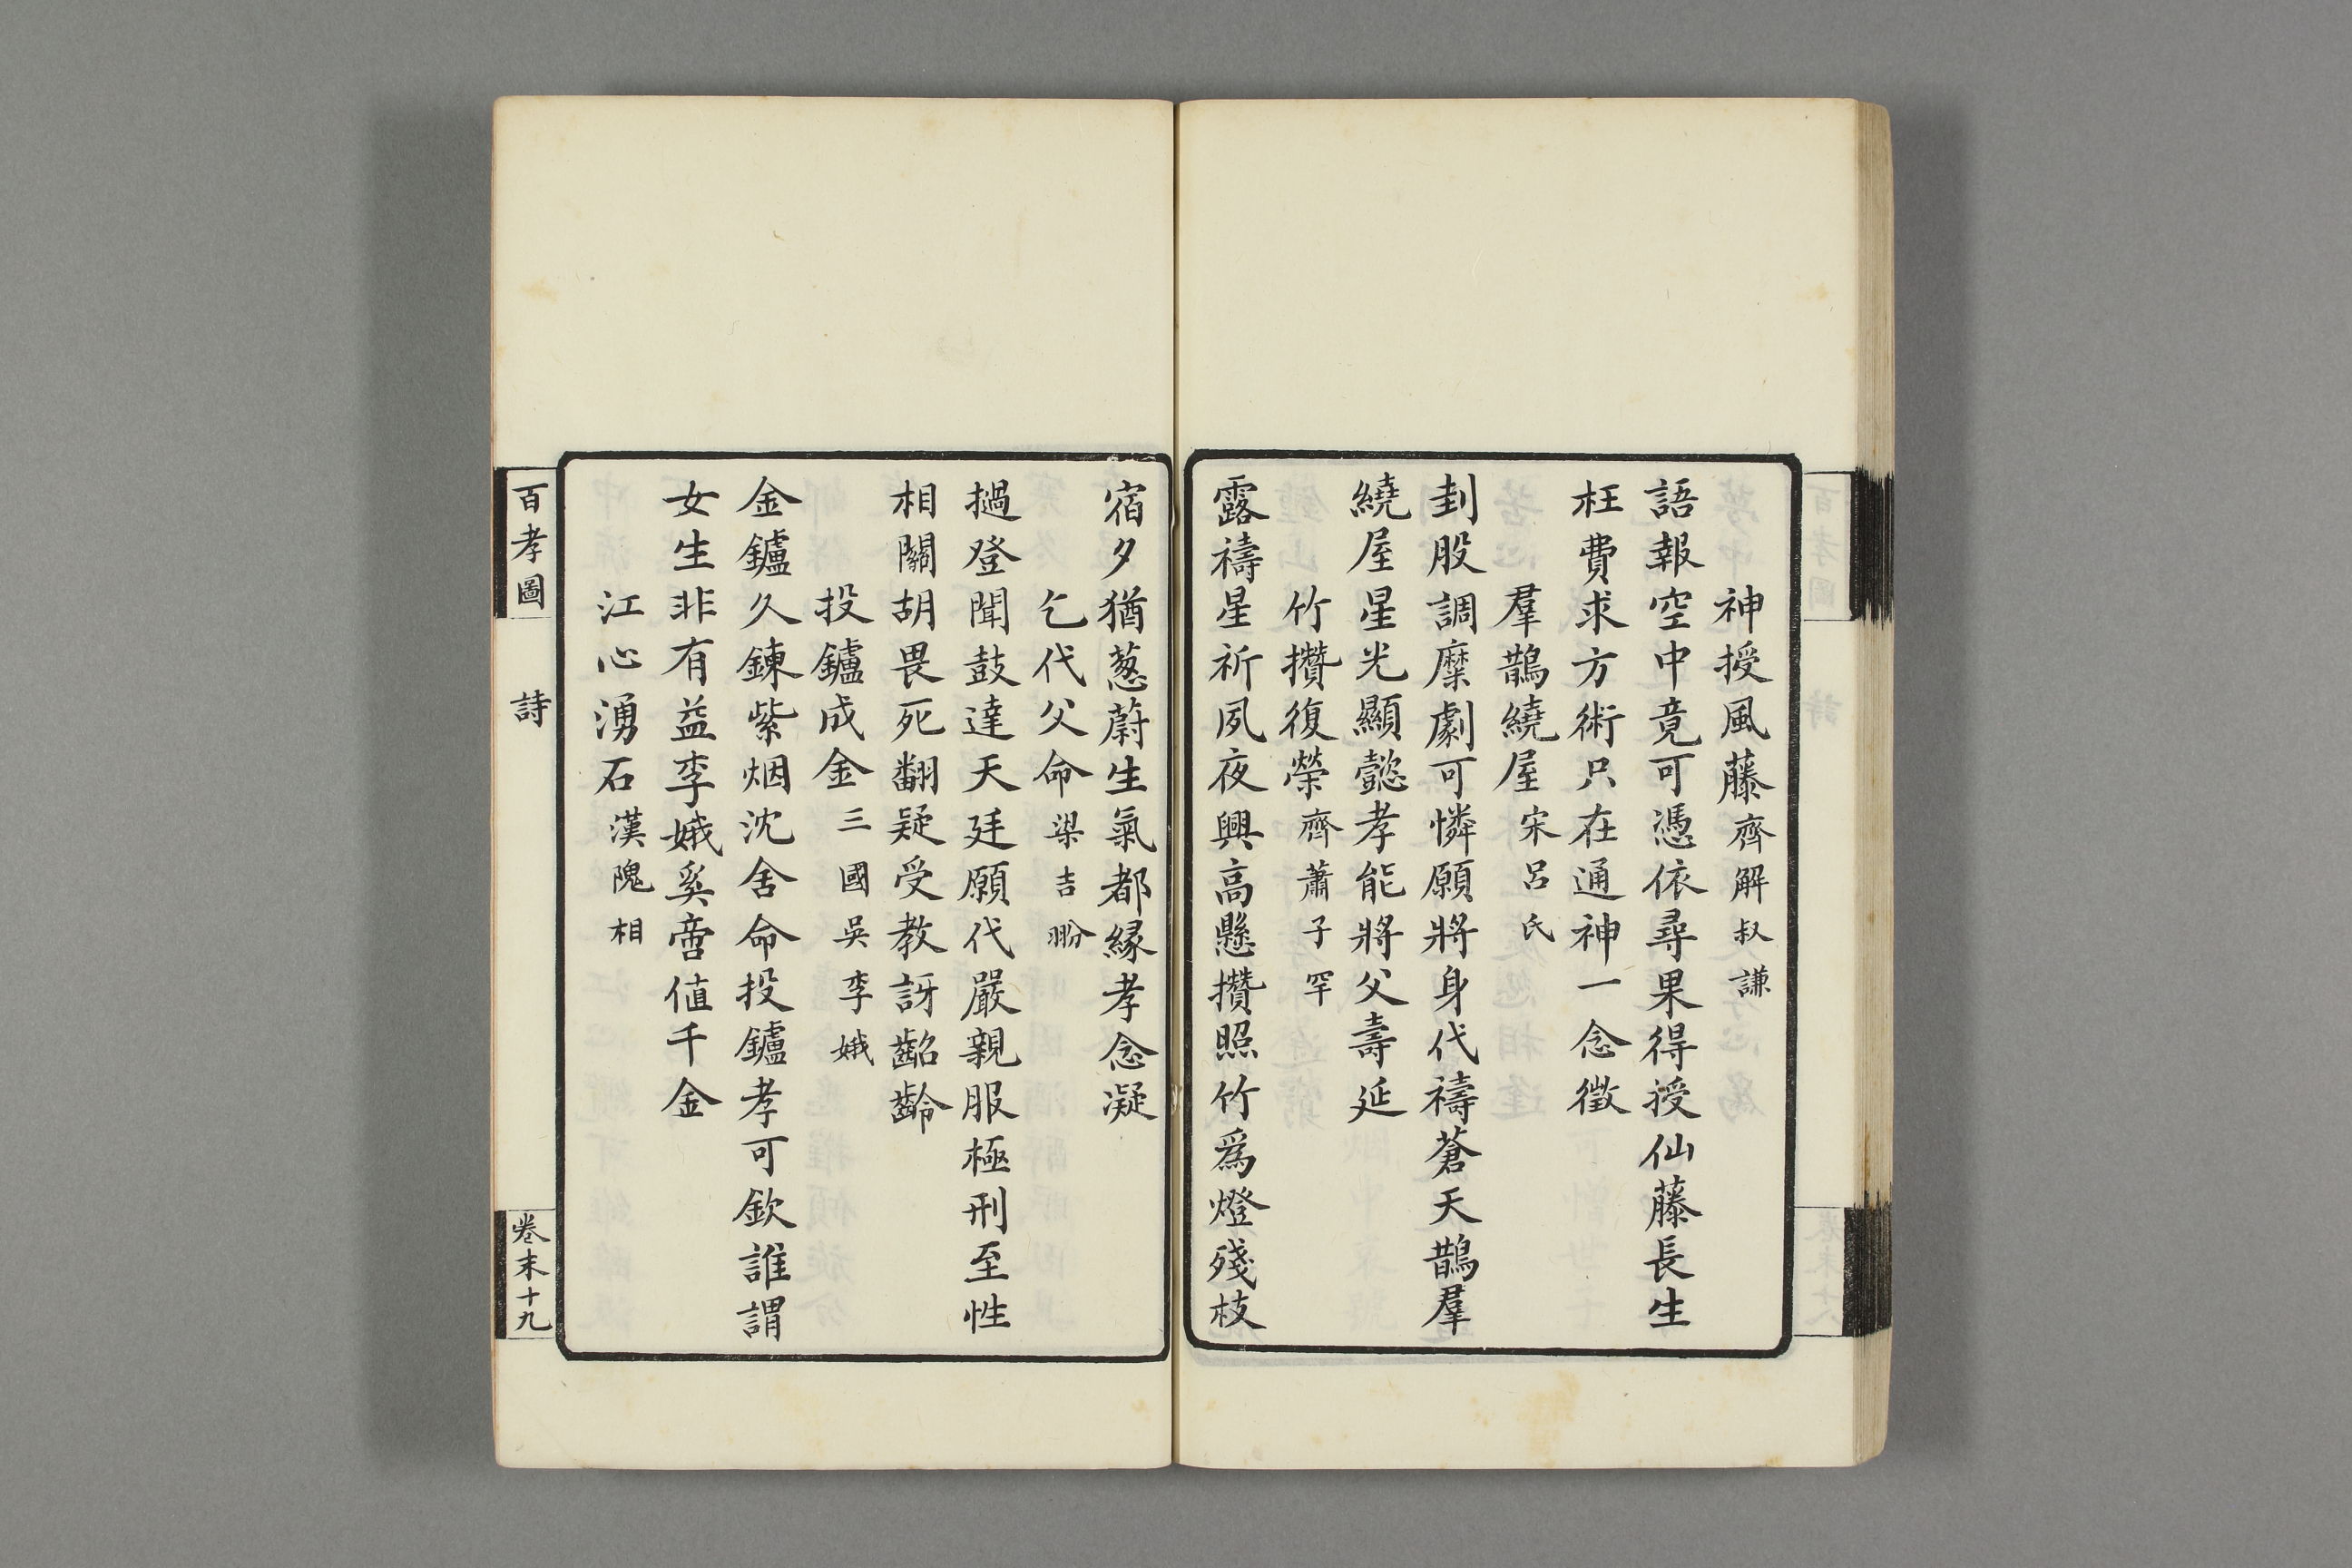 神授風藤齊解叔謙
語報空中竟可憑依尋果得授仙藤長生
枉費求方術只在通神一念徵
羣鵲繞屋宋呂氏
刲股調糜劇可憐願將身代禱蒼天鵲羣
繞屋星光顯懿孝能將父壽延
竹攢復榮齊蕭子罕
露禱星祈夙夜興高懸攢照竹爲燈殘枝
宿夕猶葱蔚生氣都緣孝念凝
乞代父命梁吉翂
撾登聞鼓達天廷願代嚴親服極刑至性
相關胡畏死翻疑受教訝齠齡
投鑪成金三國吳李娥
金鑪久鍊紫烟沈舍命投鑪孝可欽誰謂
女生非有益李娥奚啻値千金
江心湧石漢隗相
百孝圖 詩 卷末十九